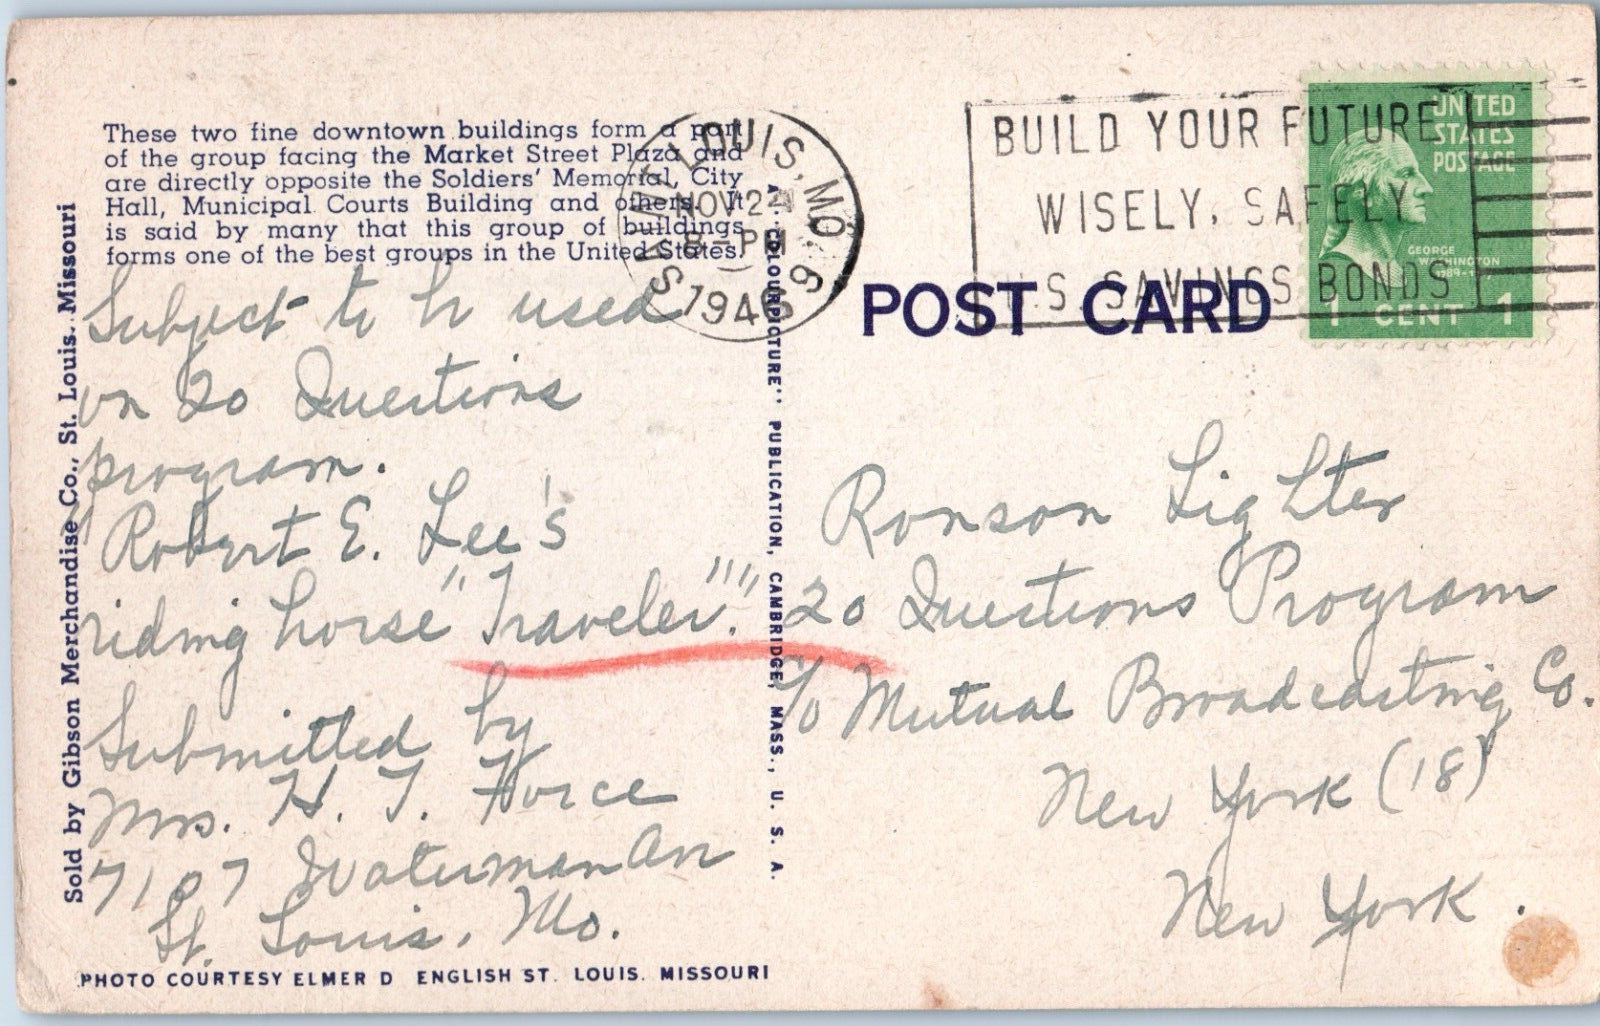 These two fine downtown buildings form a part
of the group facing the Market Street Plaza and
are directly opposite the Soldiers' Memorial, City
Hall, Municipal Courts Building and others. It
is said by many that this group of buildings
forms one of the best groups in the United States.
Sold by Gibson Merchandise Co., St. Louis, Missouri
Subject to be used
on 20 Questions
program.
Robert E. Lee's
riding horse "Traveler."
Submitted by
Mrs. H. T.
7107 Waterman Av
St. Louis, Mo.
PHOTO COURTESY ELMER D ENGLISH ST. LOUIS. MISSOURI
A "COLOURPICTURE" PUBLICATION, CAMBRIDGE, MASS., U. S. A.
LOUIS, MO.
NOV 24
8 - PM
1946
BUILD YOUR FUTURE
WISELY, SAFELY
U.S. SAVINGS BONDS
UNITED
STATES
POSTAGE
GEORGE
WASHINGTON
1 CENT 1
POST CARD
Ronson Lighter
20 Questions Program
c/o Mutual Broadcasting Co.
New York (18)
New York.